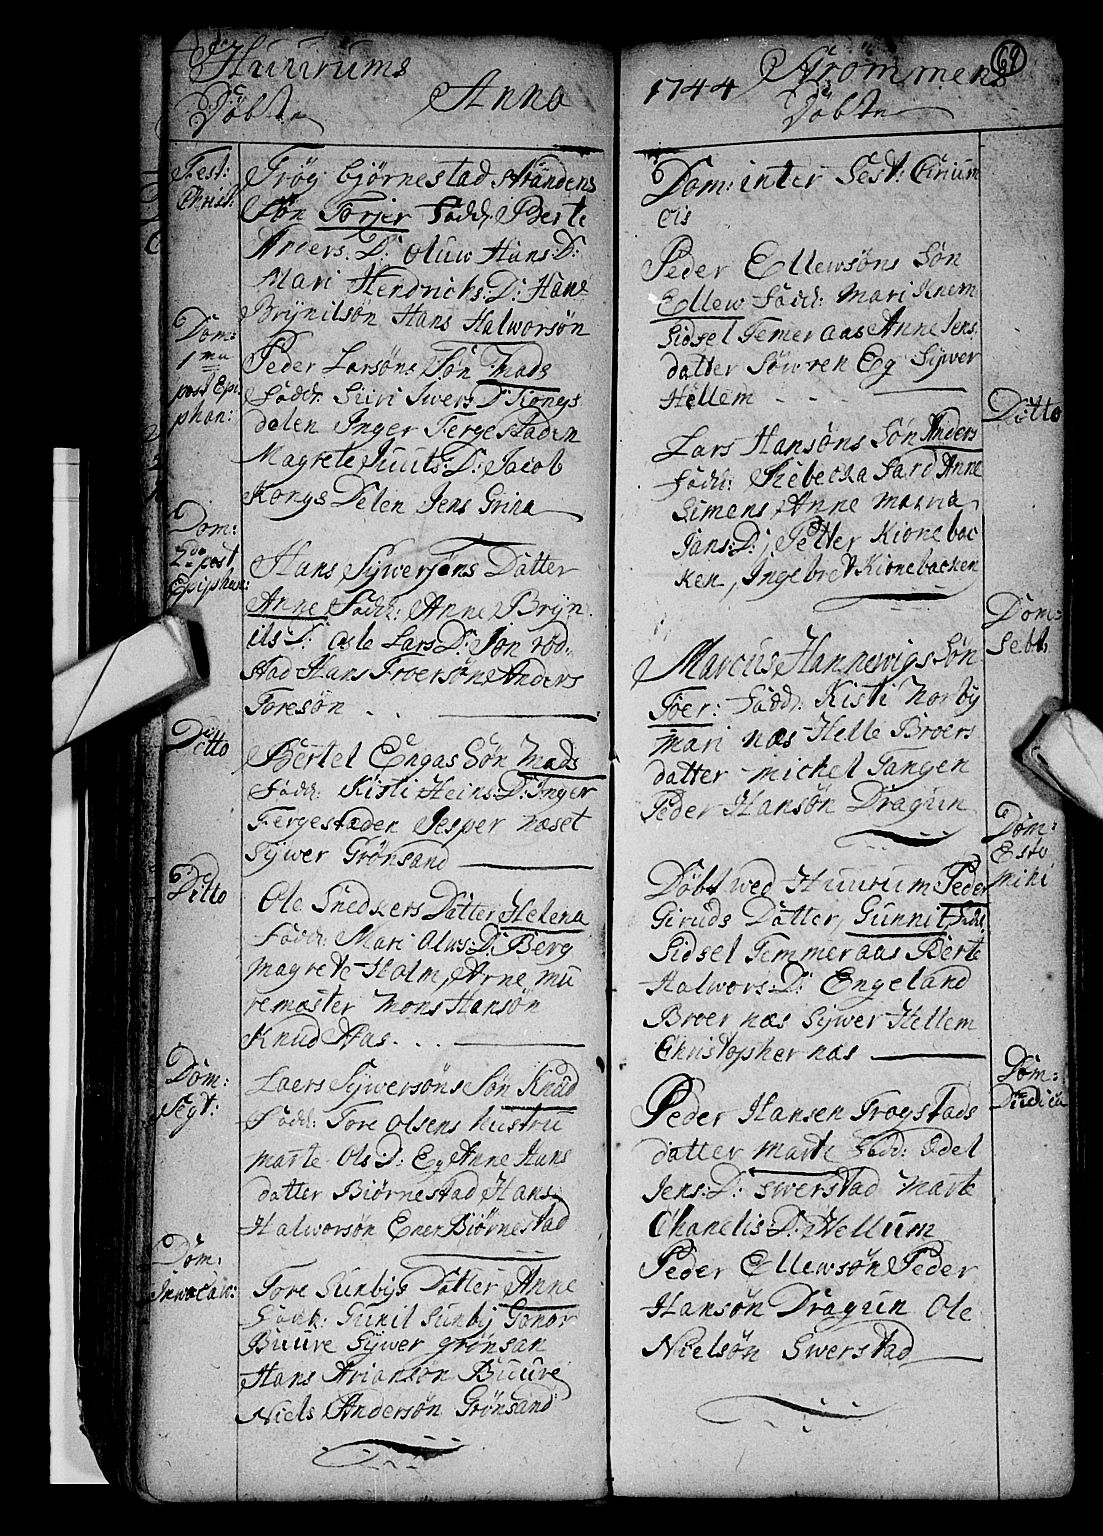 Huurums
Döbte
Anno
Fest:
Christ:
Trög: bjørnestad strandens
Søn Torjer Fadd: Berte
Anders. D: Oluw Hans: D:
Mari Hendrichs: D: Hans
Brÿnilsön Hans Halworsön
Dom:
1 ma
post Epi
phan:
Peder Larsöns Søn Mads
Fadd: Siiri Swers D: Kongs
delen Inger Fergestaden
Magrete Juuls: D: Jacob
Kongs Delen Jens Grina
Dom:
2da post
Epiphan:
Hans Sÿwersøns Datter
Anne Fadd: Anne Brÿn
ils D: Asle Lars D: Jon rod
stad Hans Froersöne Anders
Foresön
Ditto
Bertel Engas Søn Mads
Fadd: Kisti Heins: D: Inger
Fergestaden Jesper næset
Sÿwer Grönsand
Ditto
Ole Snedkers Datter Helena
Fadd: Mari Olus: D: Berg
Magrete Holm, Arne mu
remaster Mons Hansön
Knud Aas
Dom:
Segt:
Laers Sÿwersöns Søn Knud
Fadd: Tore Olsens hustru
Marte Ols: D: Eg Anne Hans
datter Biörnestad, Hans
Halworsön Ener Biörnestad
Dom:
Inwocaw:
Tore Sunbÿs Datter Anne
Fadd: Gunil Sunbÿ Gonor
Buure Sÿwer grönsan
Hans Ariansön Buure
Niels Andersön Grönsand
69
1744 Strommens
Döbte
Dom: inter Fest: Circum
cis
Peder Ellewsöns Søn
Ellew Fadd: Mari Knem
Sidsel Temeraas Anne Jens
datter Söwren Eg Sÿwer
Hellem
Ditto
Lars Hansöns Søn Anders
Fadd: Rebecka Fard Anne
Simens Anne Maria
Jans: D: Petter Kionebac
ken, Ingebret Kionebacken
Dom:
Sebt:
Marcus Hannewigs Søn
Toer: Fadd: Kisti Norbÿ
Mari næs Helle Broers
datter Michel Tangen
Peder Hansön Dragun
Dom:
Esto
mihi
Döbt wed Huurum Peder
Giruds Datter, Gunnil, Fad:
Sidsel Temmeraas Berte
Halwors: D: Engeland
Broer næs Sÿwer Hellem
Christopher næs
Dom:
Judica
Peder Hansen Trogstads
datter Marte Fadd: Edel
Jens: D: Swerstad Marte
Chanelis: D: Hellum
Peder Ellewsön Peder
Hansön Dragun Ole
Nielsön Swerstad